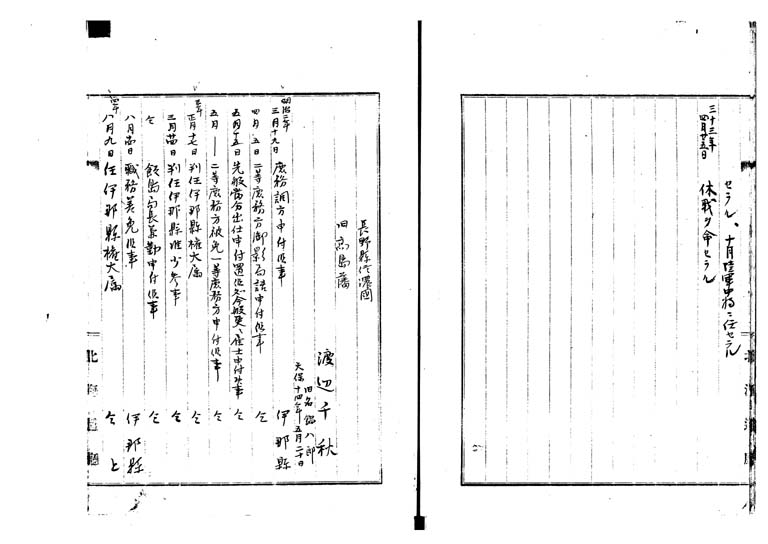 セラル、十月陸軍中将ニ任セラル
三十三年
四月廿五日
休戦ヲ命セラル
長野縣信濃國
旧高島藩
渡辺千秋
旧名鉊八郎
天保十四年五月二十日
明治二年
三月十九日 庶務調方申付候事 伊那縣
四月五日 二等庶務方御影局詰申付候事 仝
五月十五日 先般當分出仕申付置候処今般更ニ雇士申付候事 仝
五月 二等庶務方被免一等庶務方申付候事 仝
三年
正月十七日 判任伊那縣権大属 仝
三月廿四日 判任伊那縣准少参事 仝
仝 飯島局長兼勤申付候事 仝
八月 職務差免候事 伊那縣
四年
八月九日 任伊那縣権大属 仝上
北海道廳